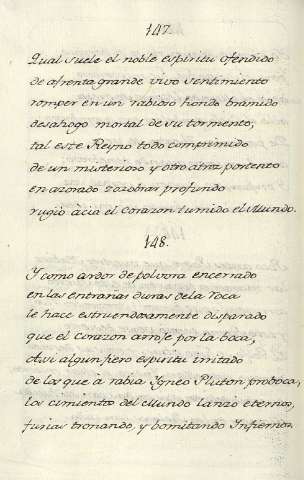 147.
Qual suele el noble espiritu ofendido
de afrenta grande vivo sentimiento
romper en un rabioso hondo bramido
desahogo mortal de su tormento,
tal este Reyno todo comprimido
de un misterioso y otro atroz portento
en azorado zozobrar profundo
rugio acia el Corazon tumido el Mundo.
148.
Y como ardor de polvora encerrado
en las entrañas duras de la roca
le hace estruendosamente disparado
que el Corazon arroje por la boca,
Assi algun fiero espiritu irritado
de los que a rabia Igneo Pluton proboca,
los cimientos del Mundo lanzó eternos,
furias tronando, y bomitando Infiernos.